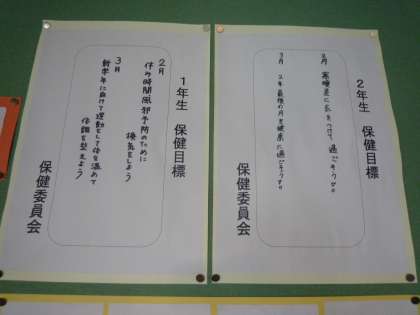 2年生 保健目標
2月 寒暖差に気をつけて過ごそう!!
3月 2年最後の月を健康に過ごそう!!
保健委員会
1年生 保健目標
2月
休み時間風邪予防のために
換気をしよう
3月
新学年に向けて運動をして体を温めて
体調を整えよう
保健委員会